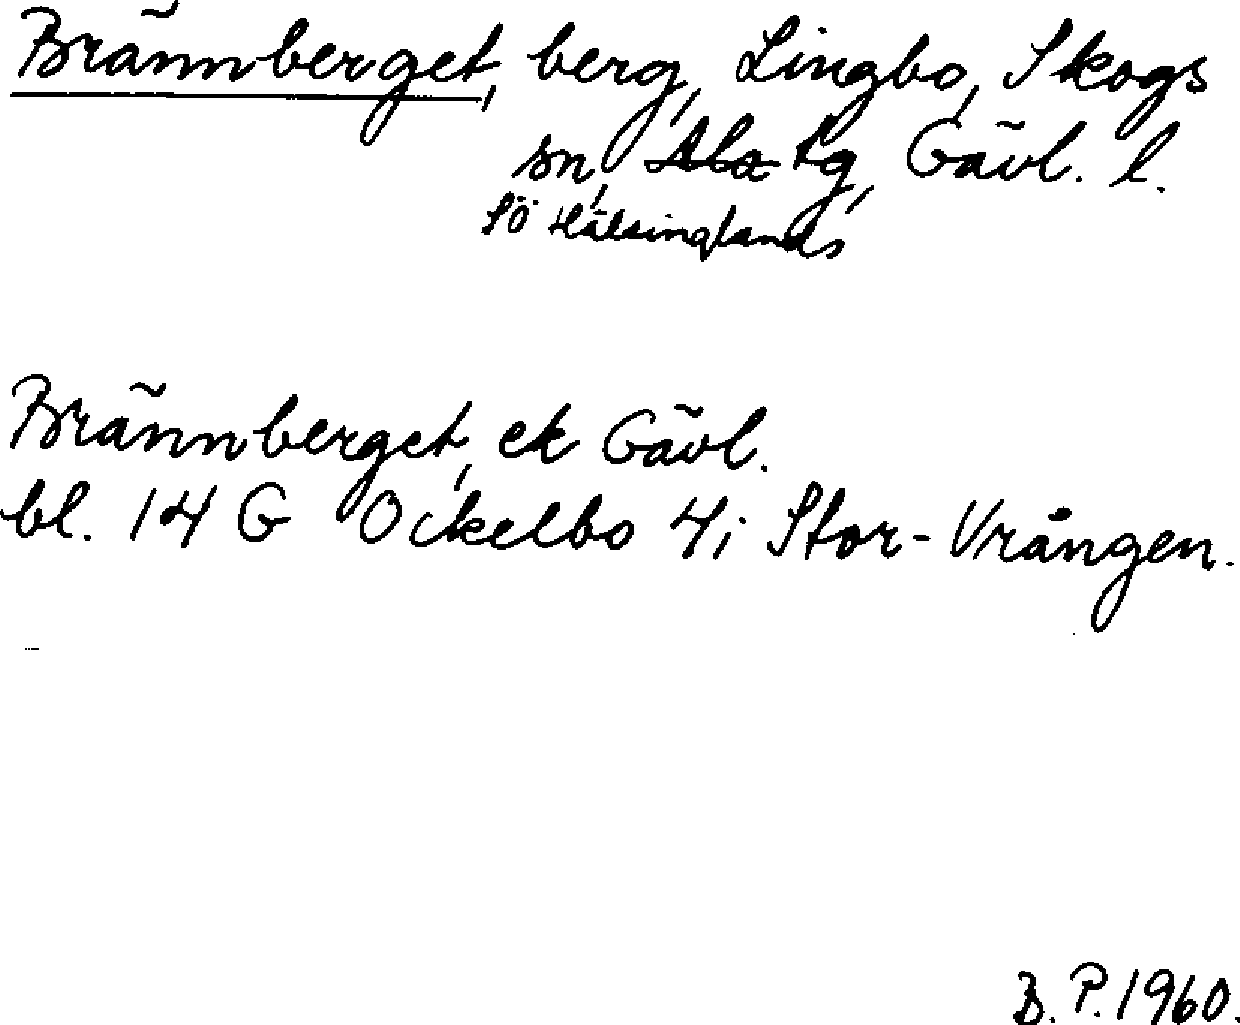 Brännberget, berg, Lingbo, Skogs
sn, Ala tg, Gävl. l.
Sö Hälsinglands
Brännberget, ek Gävl.
bl. 14 G Ockelbo 4; Stor-Vrången.
B. P. 1960.